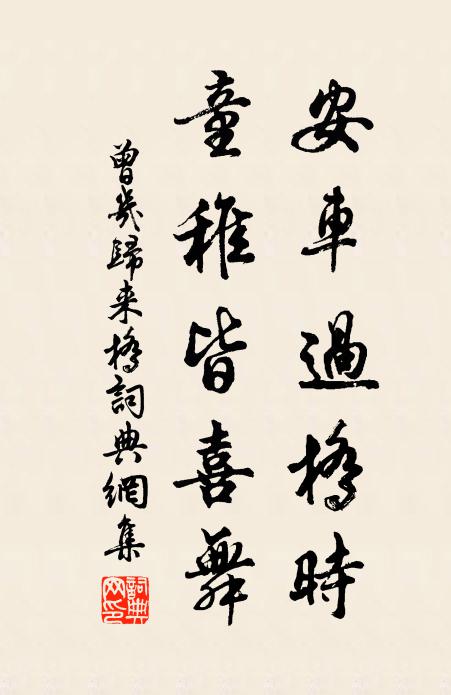 安車過橋時
童稚皆喜舞
曾幾歸来橋詞典網集
詞典網印